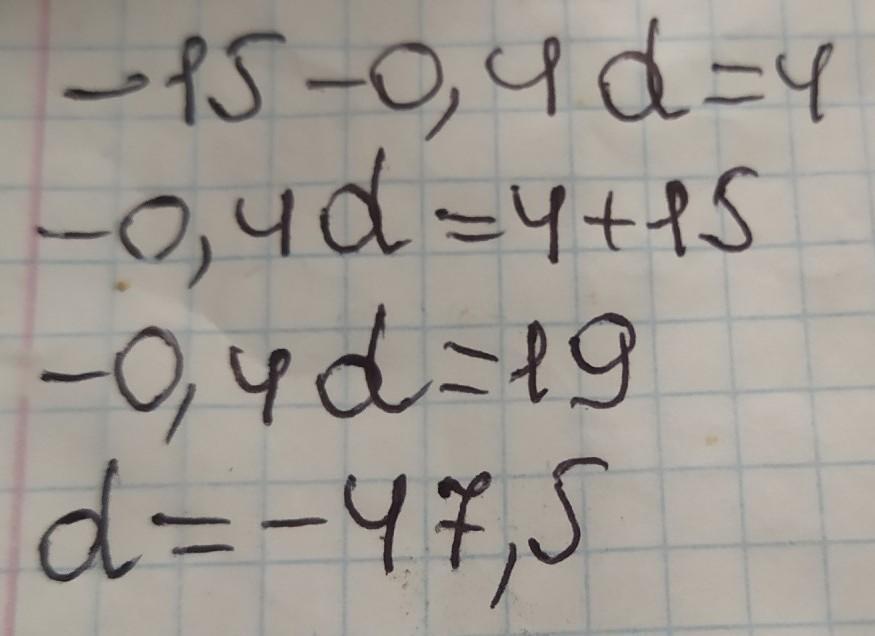 -15-0,4d=4
-0,4d=4+15
-0,4d=19
d=-47,5